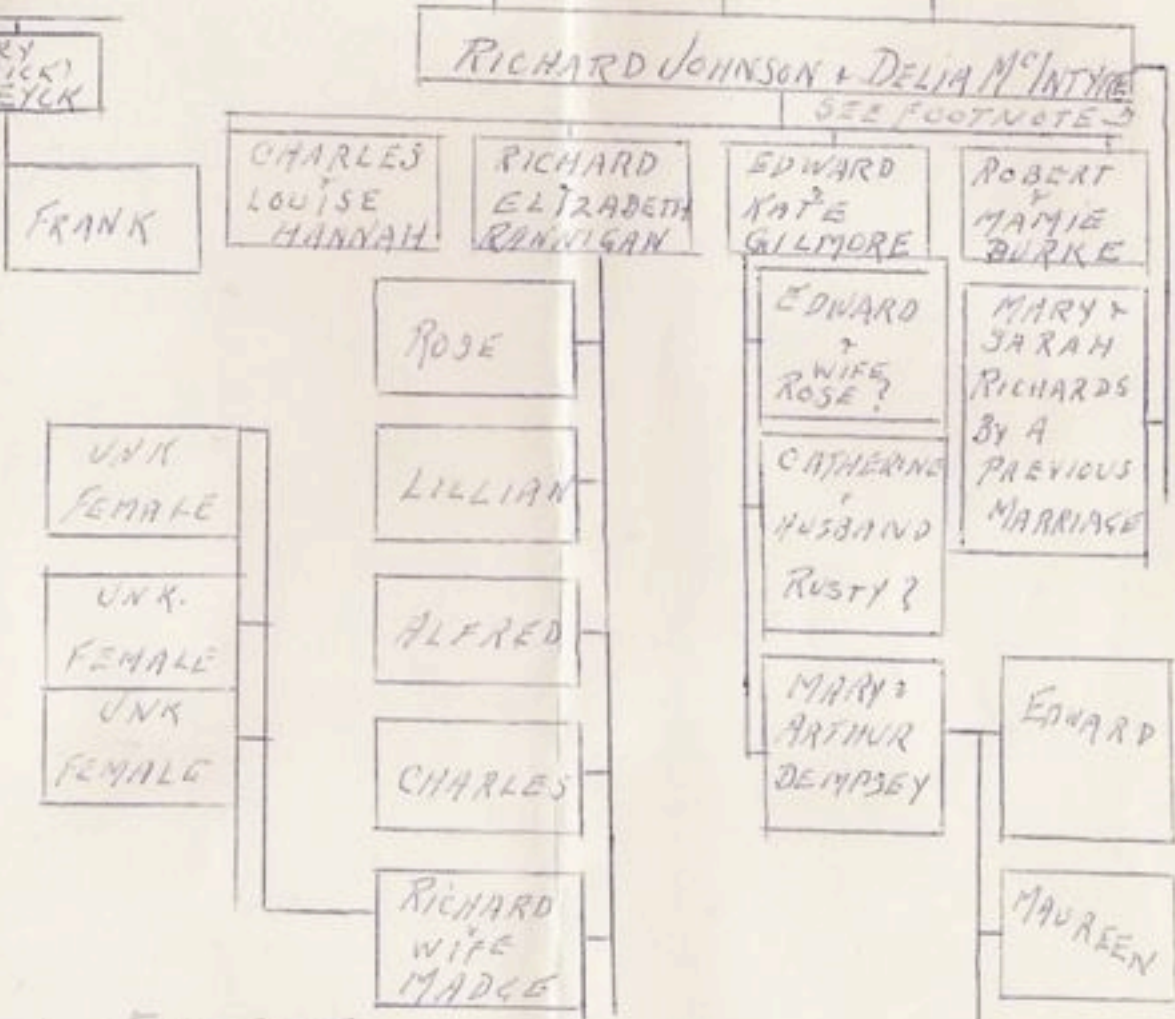 RY
ICK)
EYCK
FRANK
RICHARD JOHNSON & DELIA McINTYRE
SEE FOOTNOTE
CHARLES
&
LOUISE
HANNAH
RICHARD
&
ELIZABETH
RANNIGAN
EDWARD
&
KATE
GILMORE
ROBERT
&
MAMIE
BURKE
ROSE
LILLIAN
ALFRED
CHARLES
RICHARD
&
WIFE
MADGE
UNK
FEMALE
UNK.
FEMALE
UNK
FEMALE
EDWARD
&
WIFE
ROSE?
CATHERINE
&
HUSBAND
RUSTY?
MARY &
ARTHUR
DEMPSEY
MARY &
SARAH
RICHARDS
BY A
PREVIOUS
MARRIAGE
EDWARD
MAUREEN